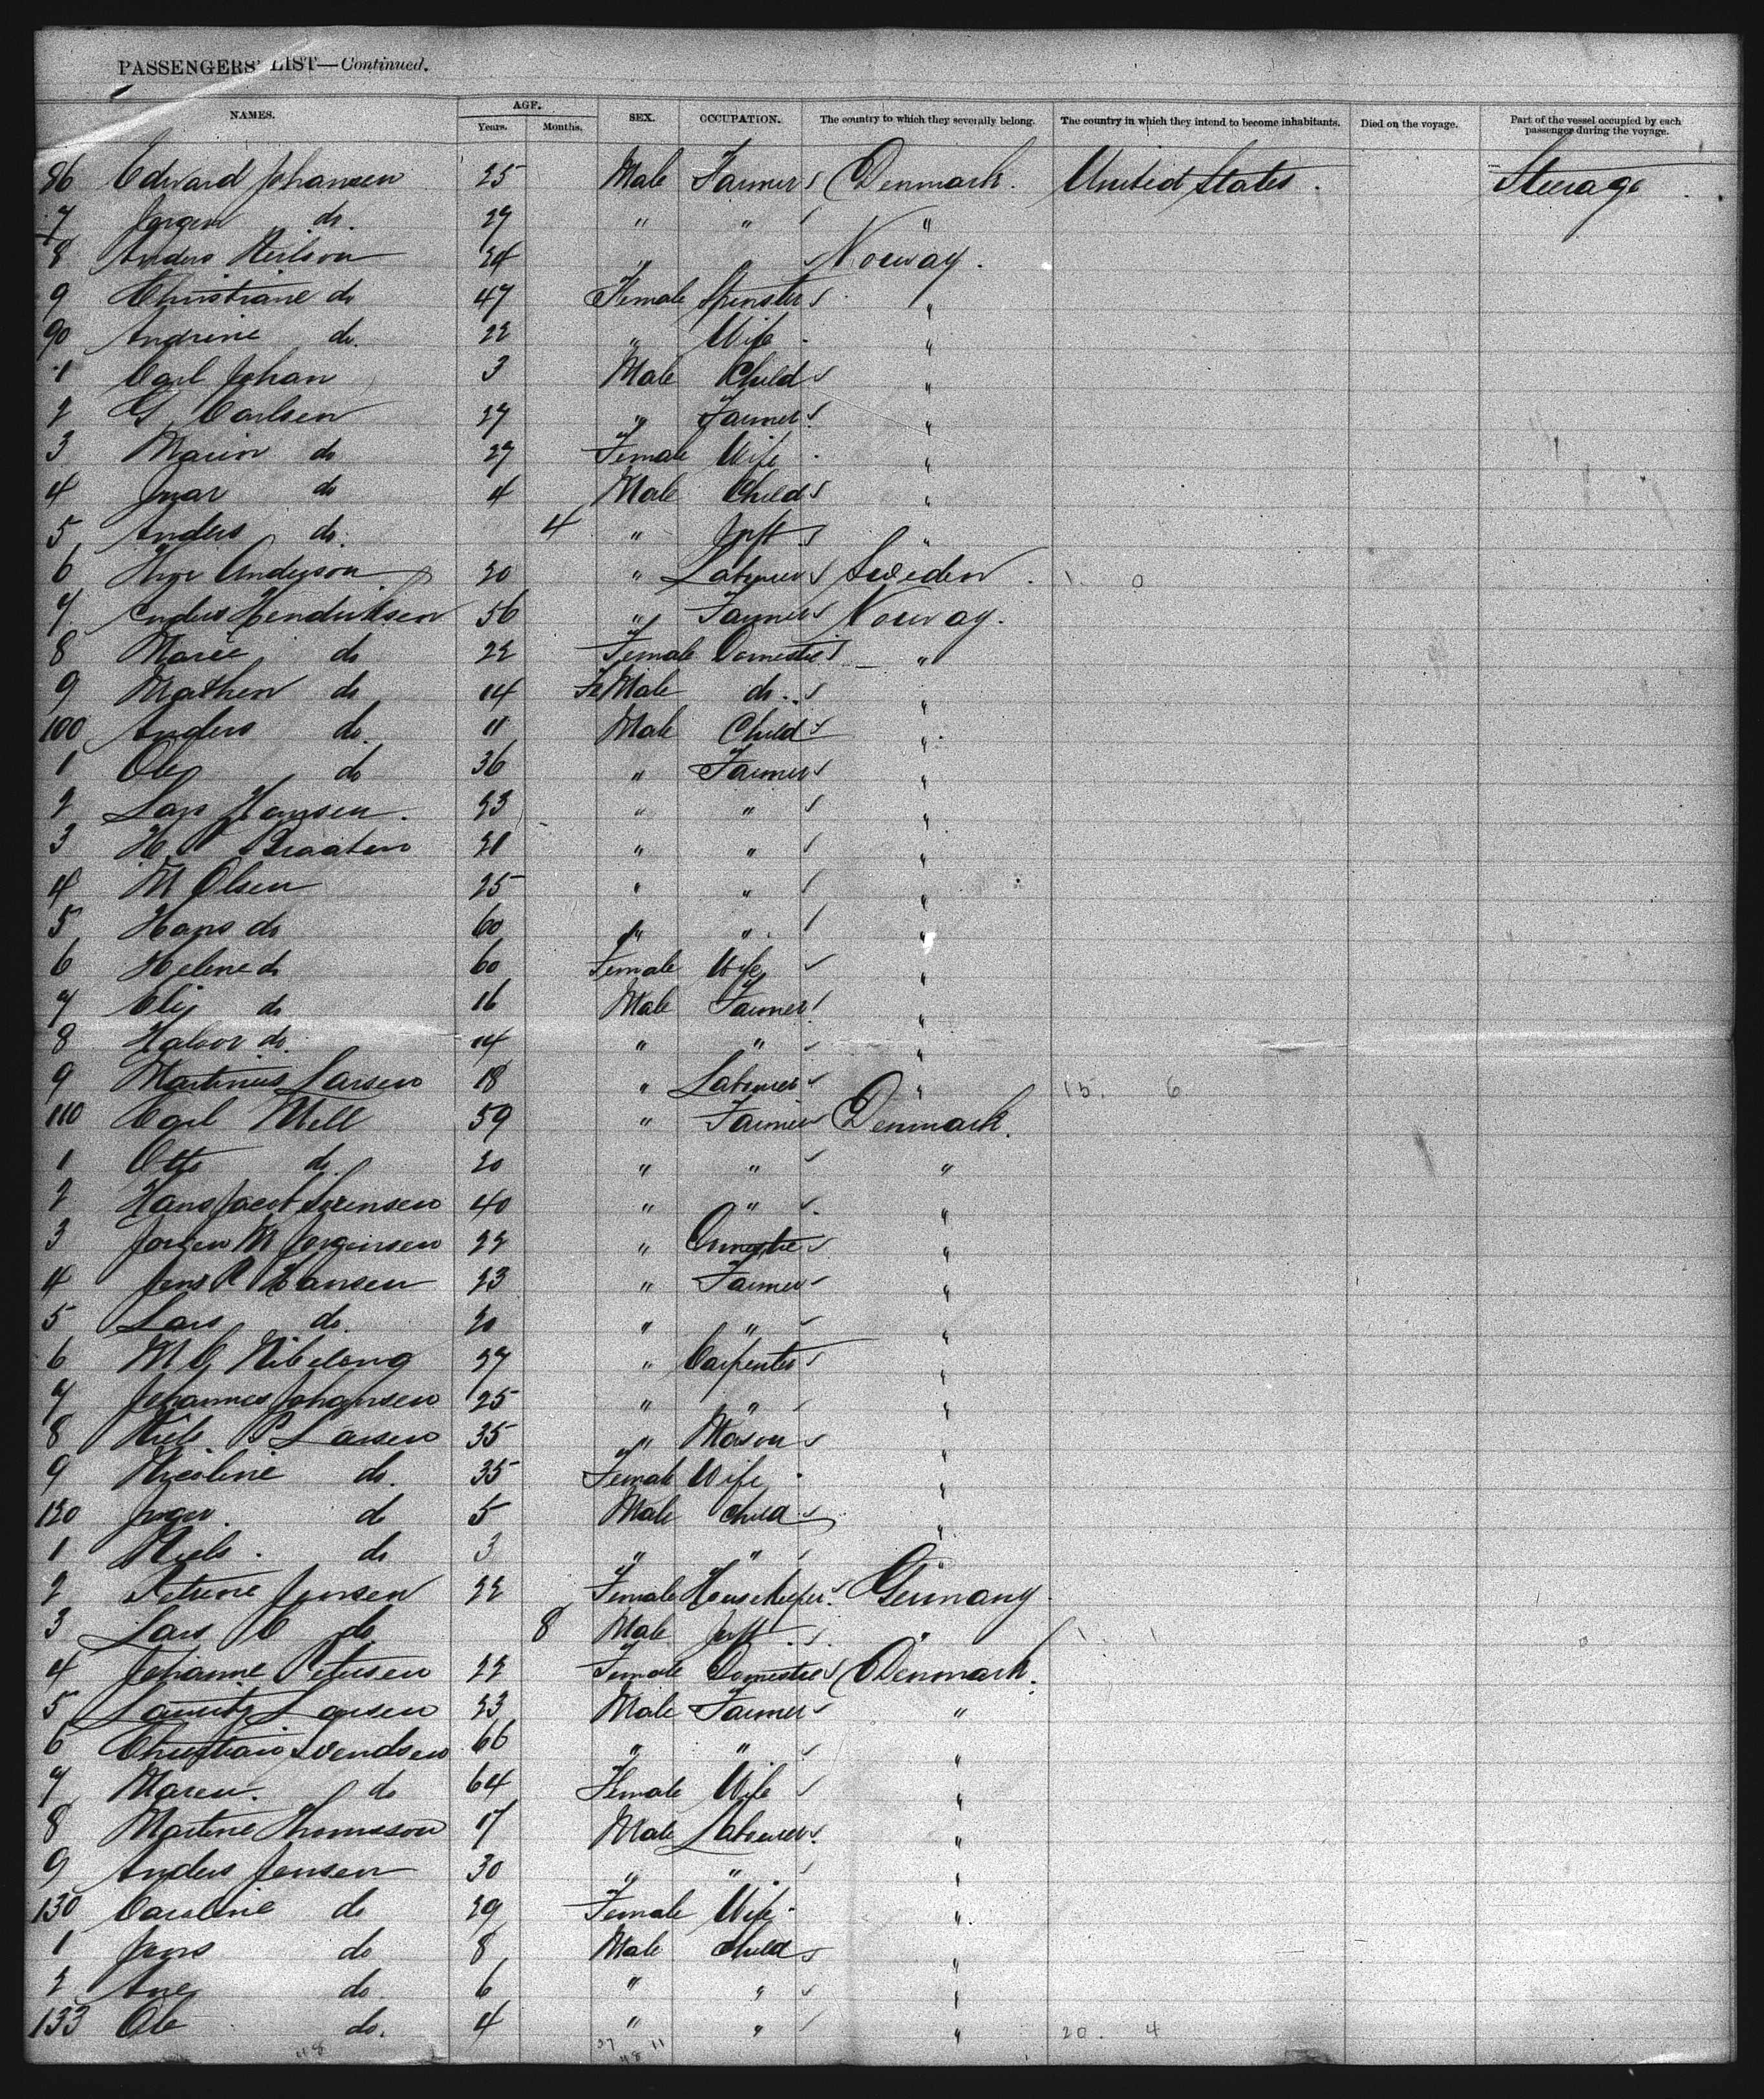 PASSENGERS' LIST—Continued.
NAMES. AGE. Years. Months. SEX. OCCUPATION. The country to which they severally belong. The country in which they intend to become inhabitants. Died on the voyage. Part of the vessel occupied by each passenger during the voyage.
86 Edward Johansen 25 Male Farmer Denmark. United States. Steerage
7 Jorgen do. 27 " " "
8 Anders Neilson 24 " " Norway.
9 Christiane do 47 Female Spinster "
90 Andrine do. 22 " Wife "
1 Carl Johan 3 Male Child "
2 G Carlsen 27 " Farmer "
3 Maren do 27 Female Wife "
4 Ivar do 4 Male Child "
5 Anders do. 4 " Inft "
6 Anderson 20 " Laborer Sweden 1. 0
7 Anders Hendriksen 56 " Farmer Norway.
8 Marie do 22 Female Domestic "
9 Mathen do 14 FeMale do. "
100 Anders do. 11 Male Child "
1 Ole do 36 " Farmer "
2 Lars Hansen. 23 " " "
3 H Braaten 21 " " "
4 M Olsen 25 " " "
5 Hans do 60 " " "
6 Helene do 60 Female Wife "
7 do 16 Male Farmer "
8 Halvor do. 14 " " "
9 Martinius Larsen 18 " Laborer " 15. 6
110 Carl Mell 59 " Farmer Denmark.
1 Otto do. 20 " " "
2 Hans Jacob Sorensen 40 " " "
3 Jorgen M Jorgensen 22 " Domestic "
4 Jens P Hansen 23 " Farmer "
5 Lars do. 20 " " "
6 M C Nibelong 27 " Carpenter "
7 Johannes Johansen 25 " " "
8 Niels P Larsen 35 " Mason "
9 Nicoline do. 35 Female Wife "
120 do 5 Male Child "
1 Niels. do 3 " " "
2 Petrine Jensen 22 Female Housekeeper. Germany
3 Lars C do 8 Male Inft. " 1. 1
4 Johanne Petersen 22 Female Domestic Denmark.
5 Lauritz Larsen 23 Male Farmer "
6 Christian Svendsen 66 " " "
7 Maren. do 64 Female Wife "
8 Martine Thomsson 17 Male Laborer. "
9 Anders Jensen 30 " " "
130 Caroline do 29 Female Wife "
1 Jens do 8 Male Child "
2 Ane do. 6 " " "
133 Ole do. 4 " " " 20. 4
48 37 11
48